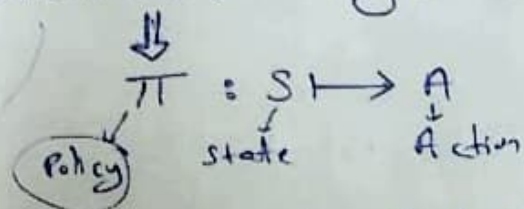 π : S ↦ A
Policy State Action